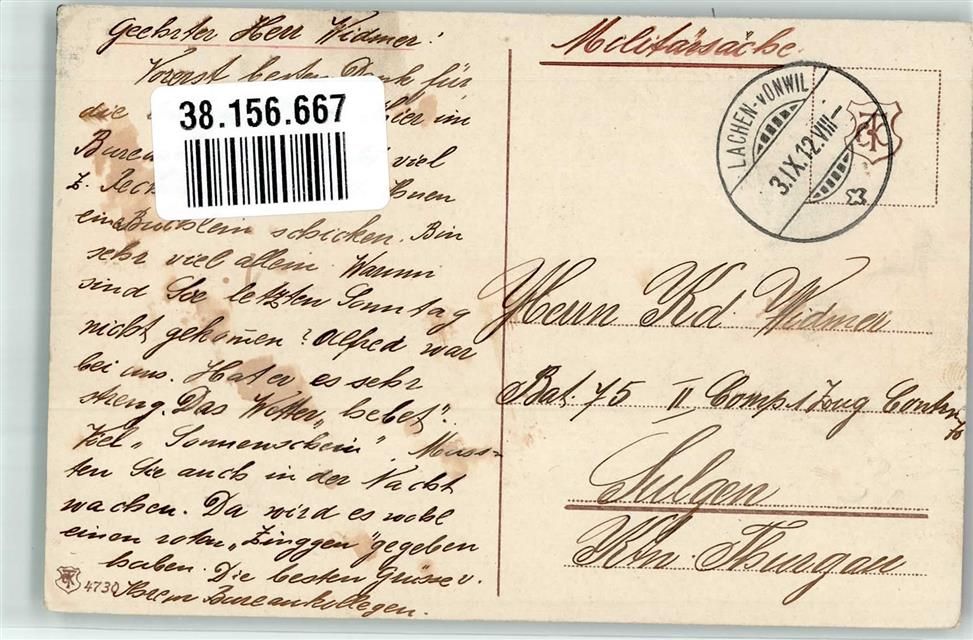 Geehrter Herr Widmer!
Vorerst besten Dank für
die hier im
38.156.667
viel
Ihnen
ein schicken. Bin
sehr viel allein. Warum
sind Sie letzten Sonntag
nicht gekommen? Alfred war
bei uns. Hat er es sehr
streng. Das Wetter „bebet".
viel „Sonnenschein". Muss=
ten Sie auch in der Nacht
wachen. Da wird es wohl
einen roten „Zinggen" gegeben
haben. Die besten Grüsse v.
Ihrem Bureaukollegen.
4730
Militärsache
LACHEN-VONWIL
3.IX.12.VIII—
Herrn Kd. Widmer
Bat. 75 II Comp 1 Zug
Sulgen
Ktn. Thurgau